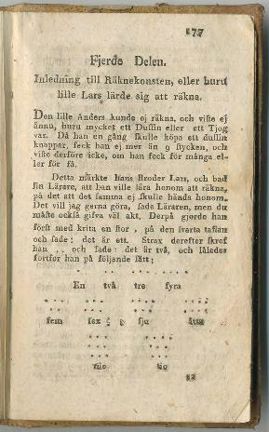 177
Fjerde Delen.
Inledning till Räknekonsten, eller huru
lille Lars lärde sig att räkna.
Den lille Anders kunde ej räkna, och viste ej
ännu, huru mycket ett Dussin eller ett Tjog
var. Då han en gång skulle köpa ett dussin
knappar, feck han ej mer än 9 stycken, och
viste derföre icke, om han feck för många el-
ler för få.
Detta märkte hans Broder Lars, och bad
sin Lärare, att han ville lära honom att räkna,
på det att det samma ej skulle hända honom.
Det vill jag gerna göra, sade Läraren, men du
måste också gifva väl akt. Derpå gjorde han
först med krita en stor . på den svarta taflan
och sade: det är ett. Strax derefter skref
han .. och sade: det är två, och således
fortfor han på följande sätt:
En två tre fyra
fem sex sju åtta
nio tio